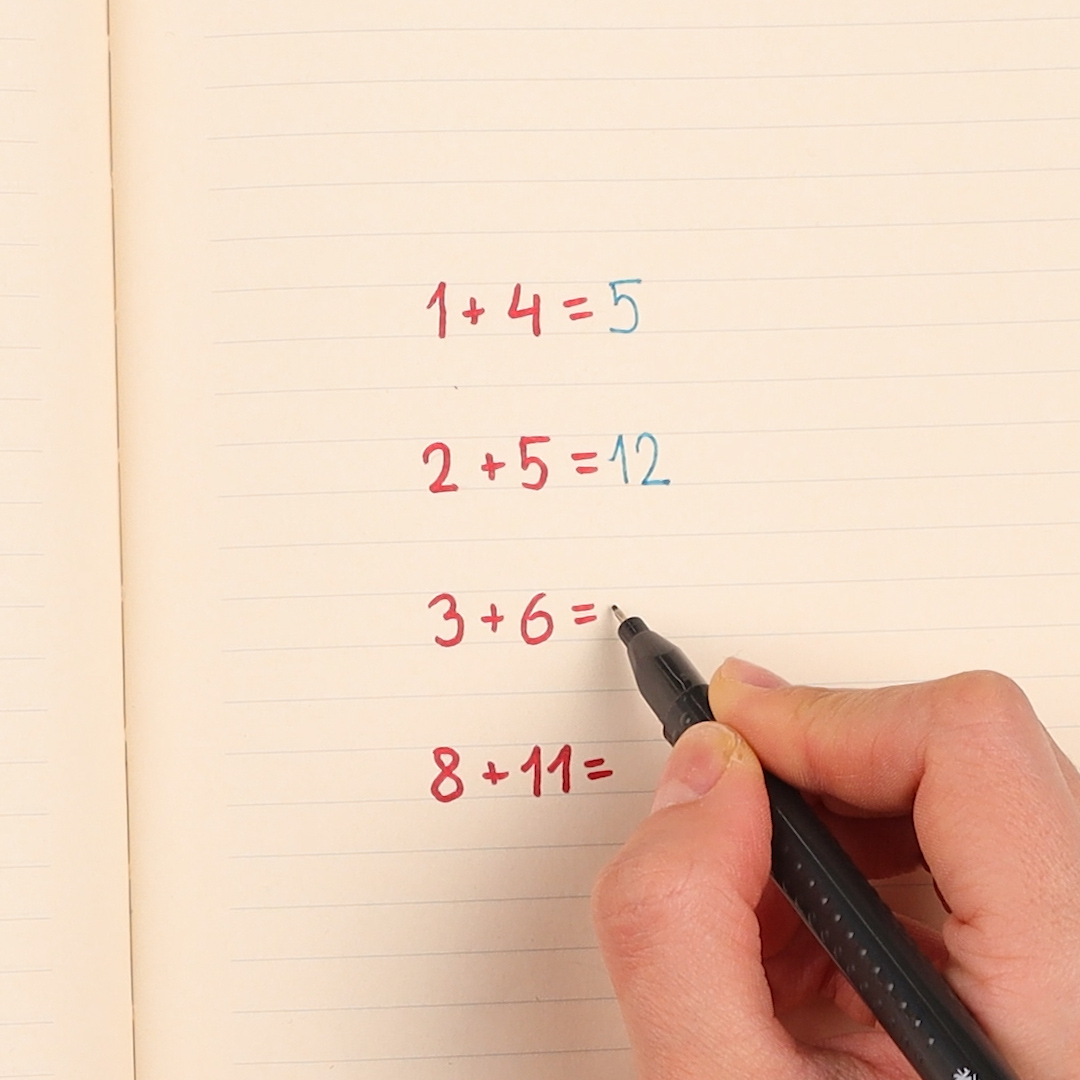 1 + 4 = 5
2 + 5 = 12
3 + 6 =
8 + 11 =